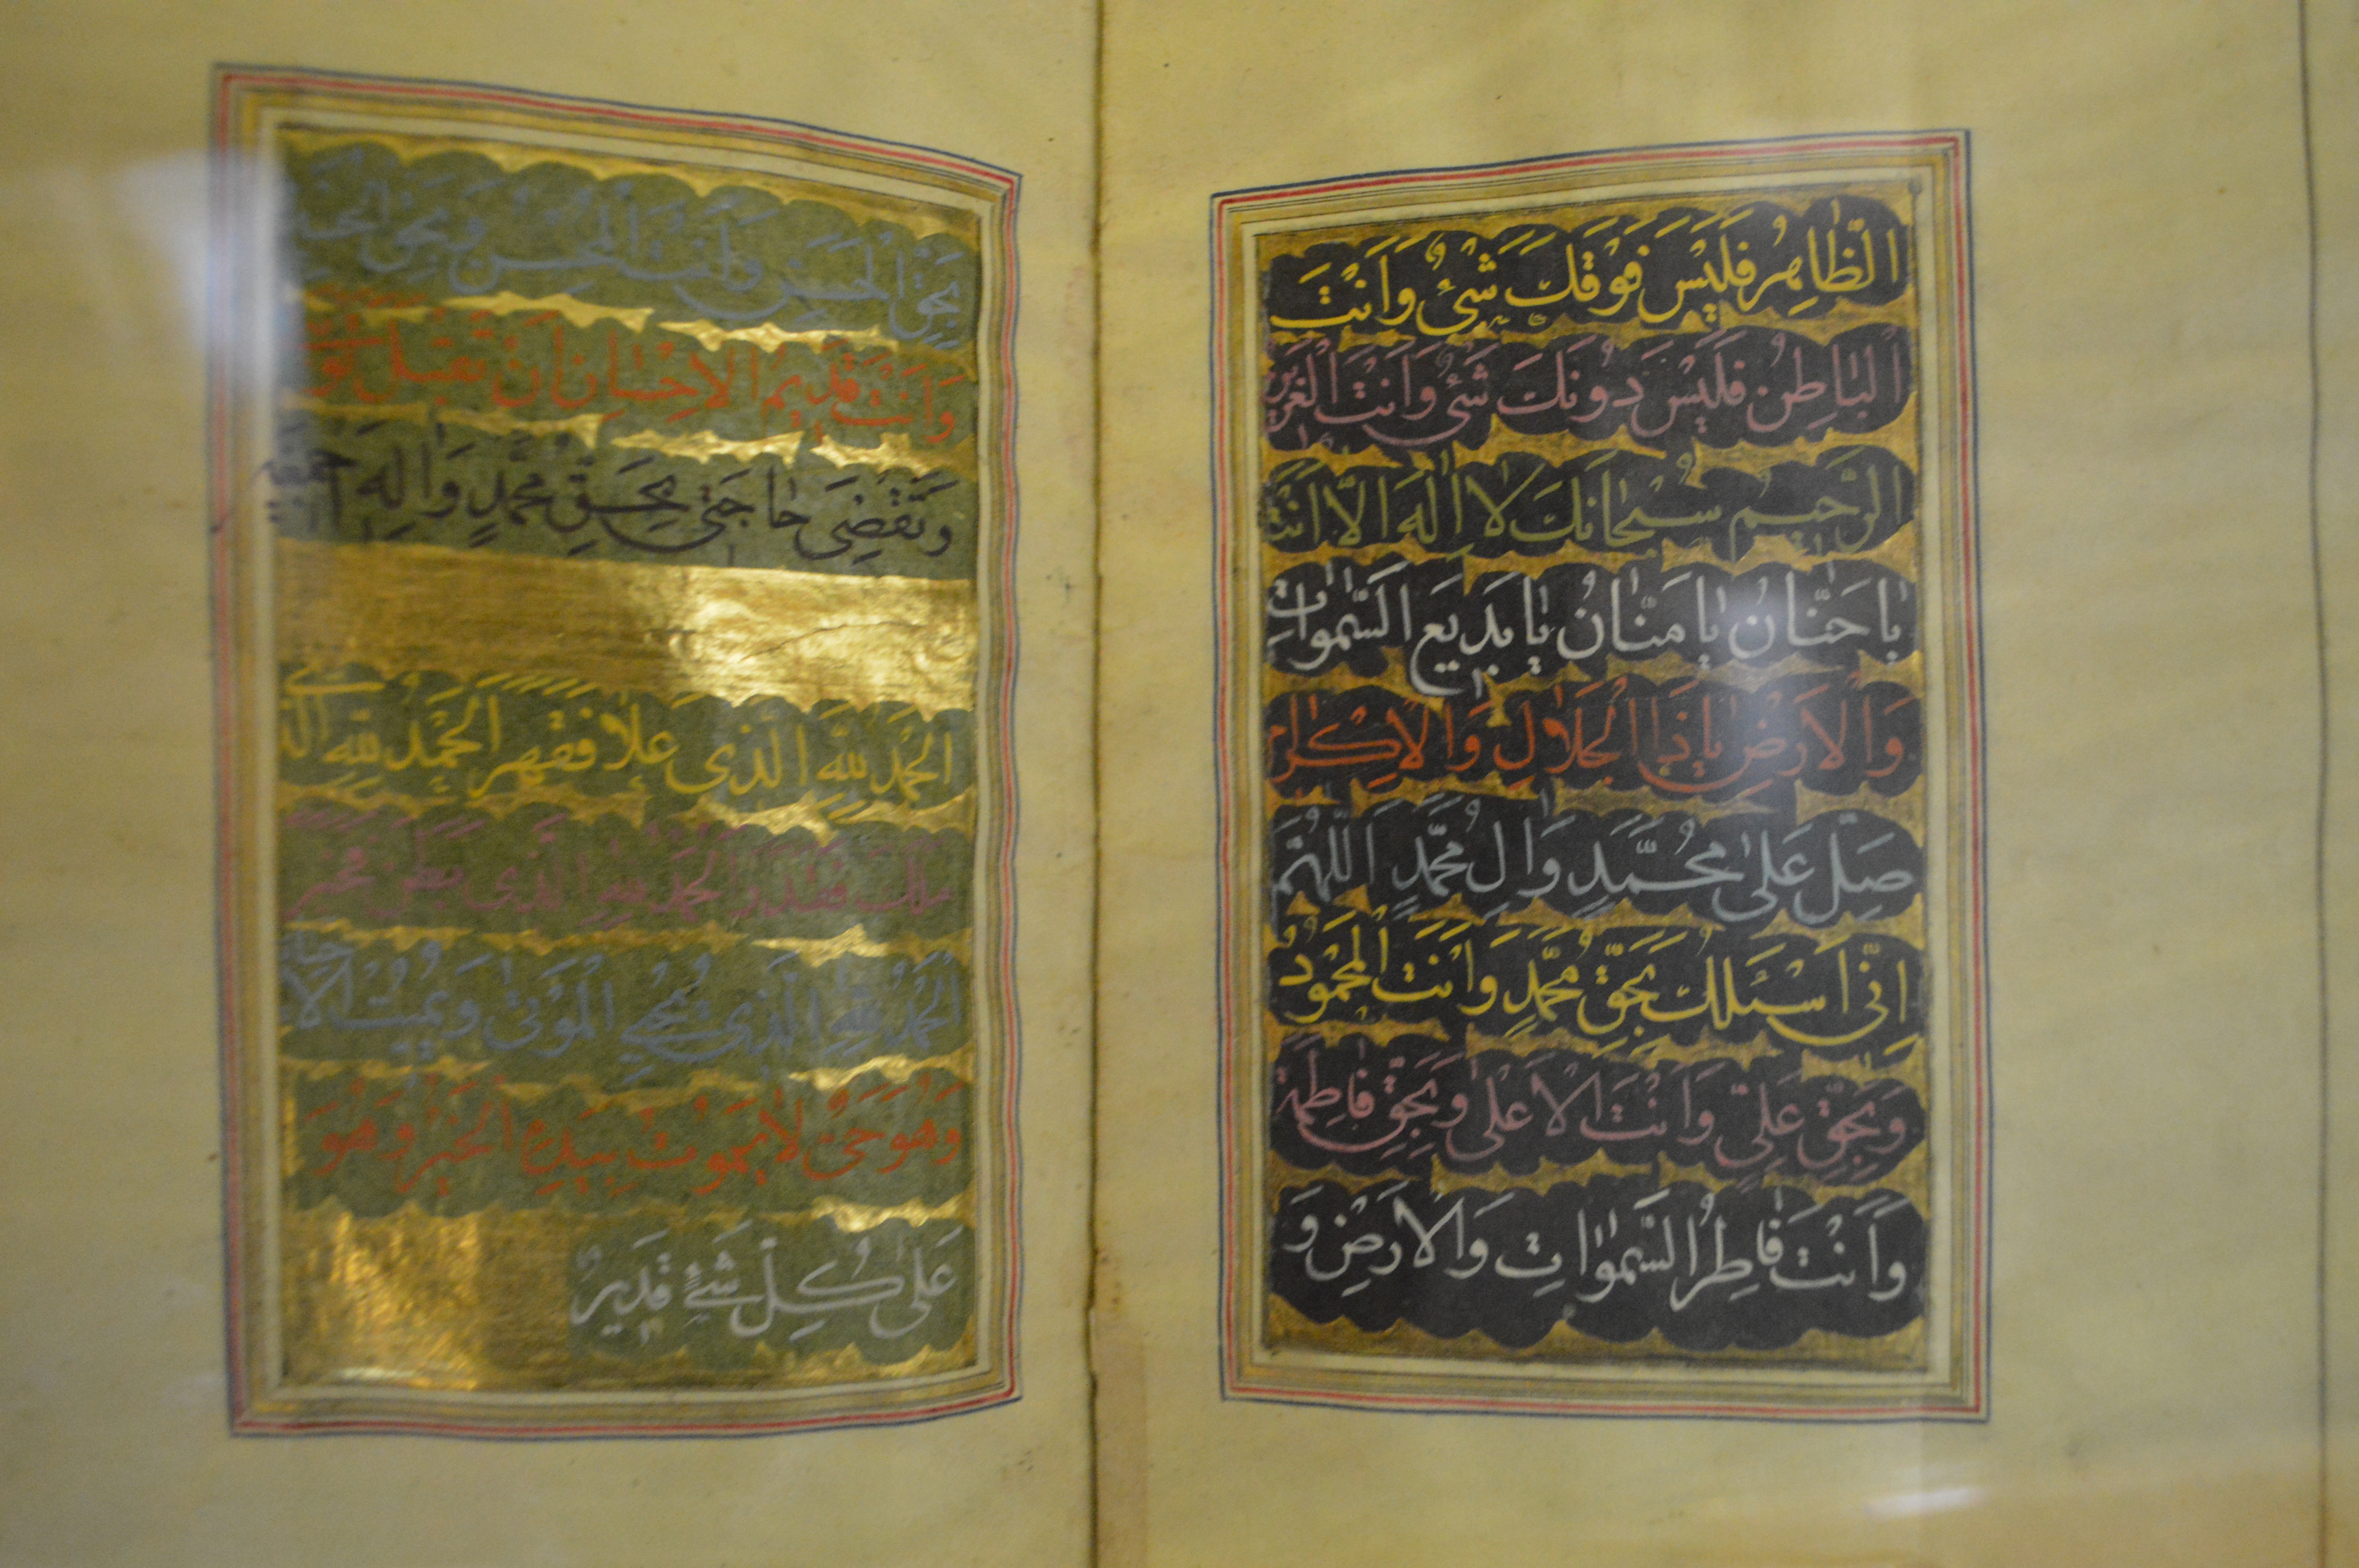 الظَّاهِرُ فَلَيْسَ فَوْقَكَ شَيْءٌ وَاَنْتَ
الْبَاطِنُ فَلَيْسَ دُونَكَ شَيْءٌ وَاَنْتَ الْعَزِيزُ
الرَّحِيمُ سُبْحَانَكَ لَا اِلٰهَ اِلَّا اَنْتَ
يَا حَنَّانُ يَا مَنَّانُ يَا بَدِيعَ السَّمٰوَاتِ
وَالْاَرْضِ يَا ذَا الْجَلَالِ وَالْاِكْرَامِ
صَلِّ عَلٰى مُحَمَّدٍ وَالِ مُحَمَّدٍ اَللّٰهُمَّ
اِنِّى اَسْئَلُكَ بِحَقِّ مُحَمَّدٍ وَاَنْتَ الْمَحْمُودُ
وَبِحَقِّ عَلِىٍّ وَاَنْتَ الْاَعْلٰى وَبِحَقِّ فَاطِمَةَ
وَاَنْتَ فَاطِرُ السَّمٰوَاتِ وَالْاَرْضِ وَ
بِحَقِّ الْحَسَنِ وَاَنْتَ الْمُحْسِنُ وَبِحَقِّ الْحُسَيْنِ
وَاَنْتَ قَدِيمُ الْاِحْسَانِ اَنْ تَقْبَلَ
وَتَقْضِىَ حَاجَتِى بِحَقِّ مُحَمَّدٍ وَاٰلِهِ اَجْمَعِينَ
اَلْحَمْدُ لِلّٰهِ الَّذِى عَلَا فَقَهَرَ اَلْحَمْدُ لِلّٰهِ الَّذِى
مَلَكَ فَقَدَرَ اَلْحَمْدُ لِلّٰهِ الَّذِى بَطَنَ فَخَبَرَ
اَلْحَمْدُ لِلّٰهِ الَّذِى يُحْيِى الْمَوْتٰى وَيُمِيتُ الْاَحْيَاءَ
وَهُوَ حَىٌّ لَا يَمُوتُ بِيَدِهِ الْخَيْرُ وَهُوَ
عَلٰى كُلِّ شَىْءٍ قَدِيرٌ